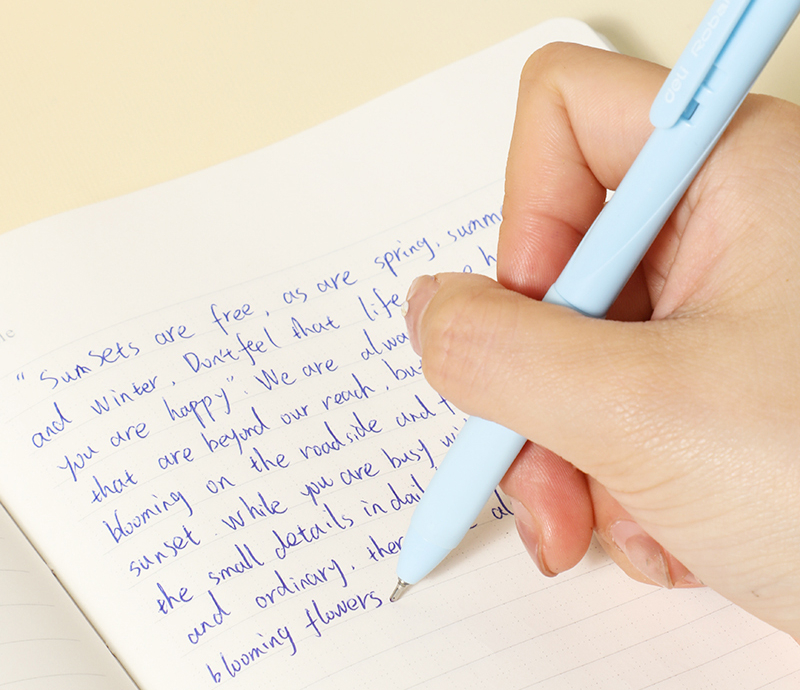 deli Roba
"Sunsets are free, as are spring, summ
and winter. Don't feel that life h
you are happy". We are alwa
that are beyond our reach, bu
blooming on the roadside and t
sunset. While you are busy wi
the small details in dail
and ordinary, ther al
blooming flowers